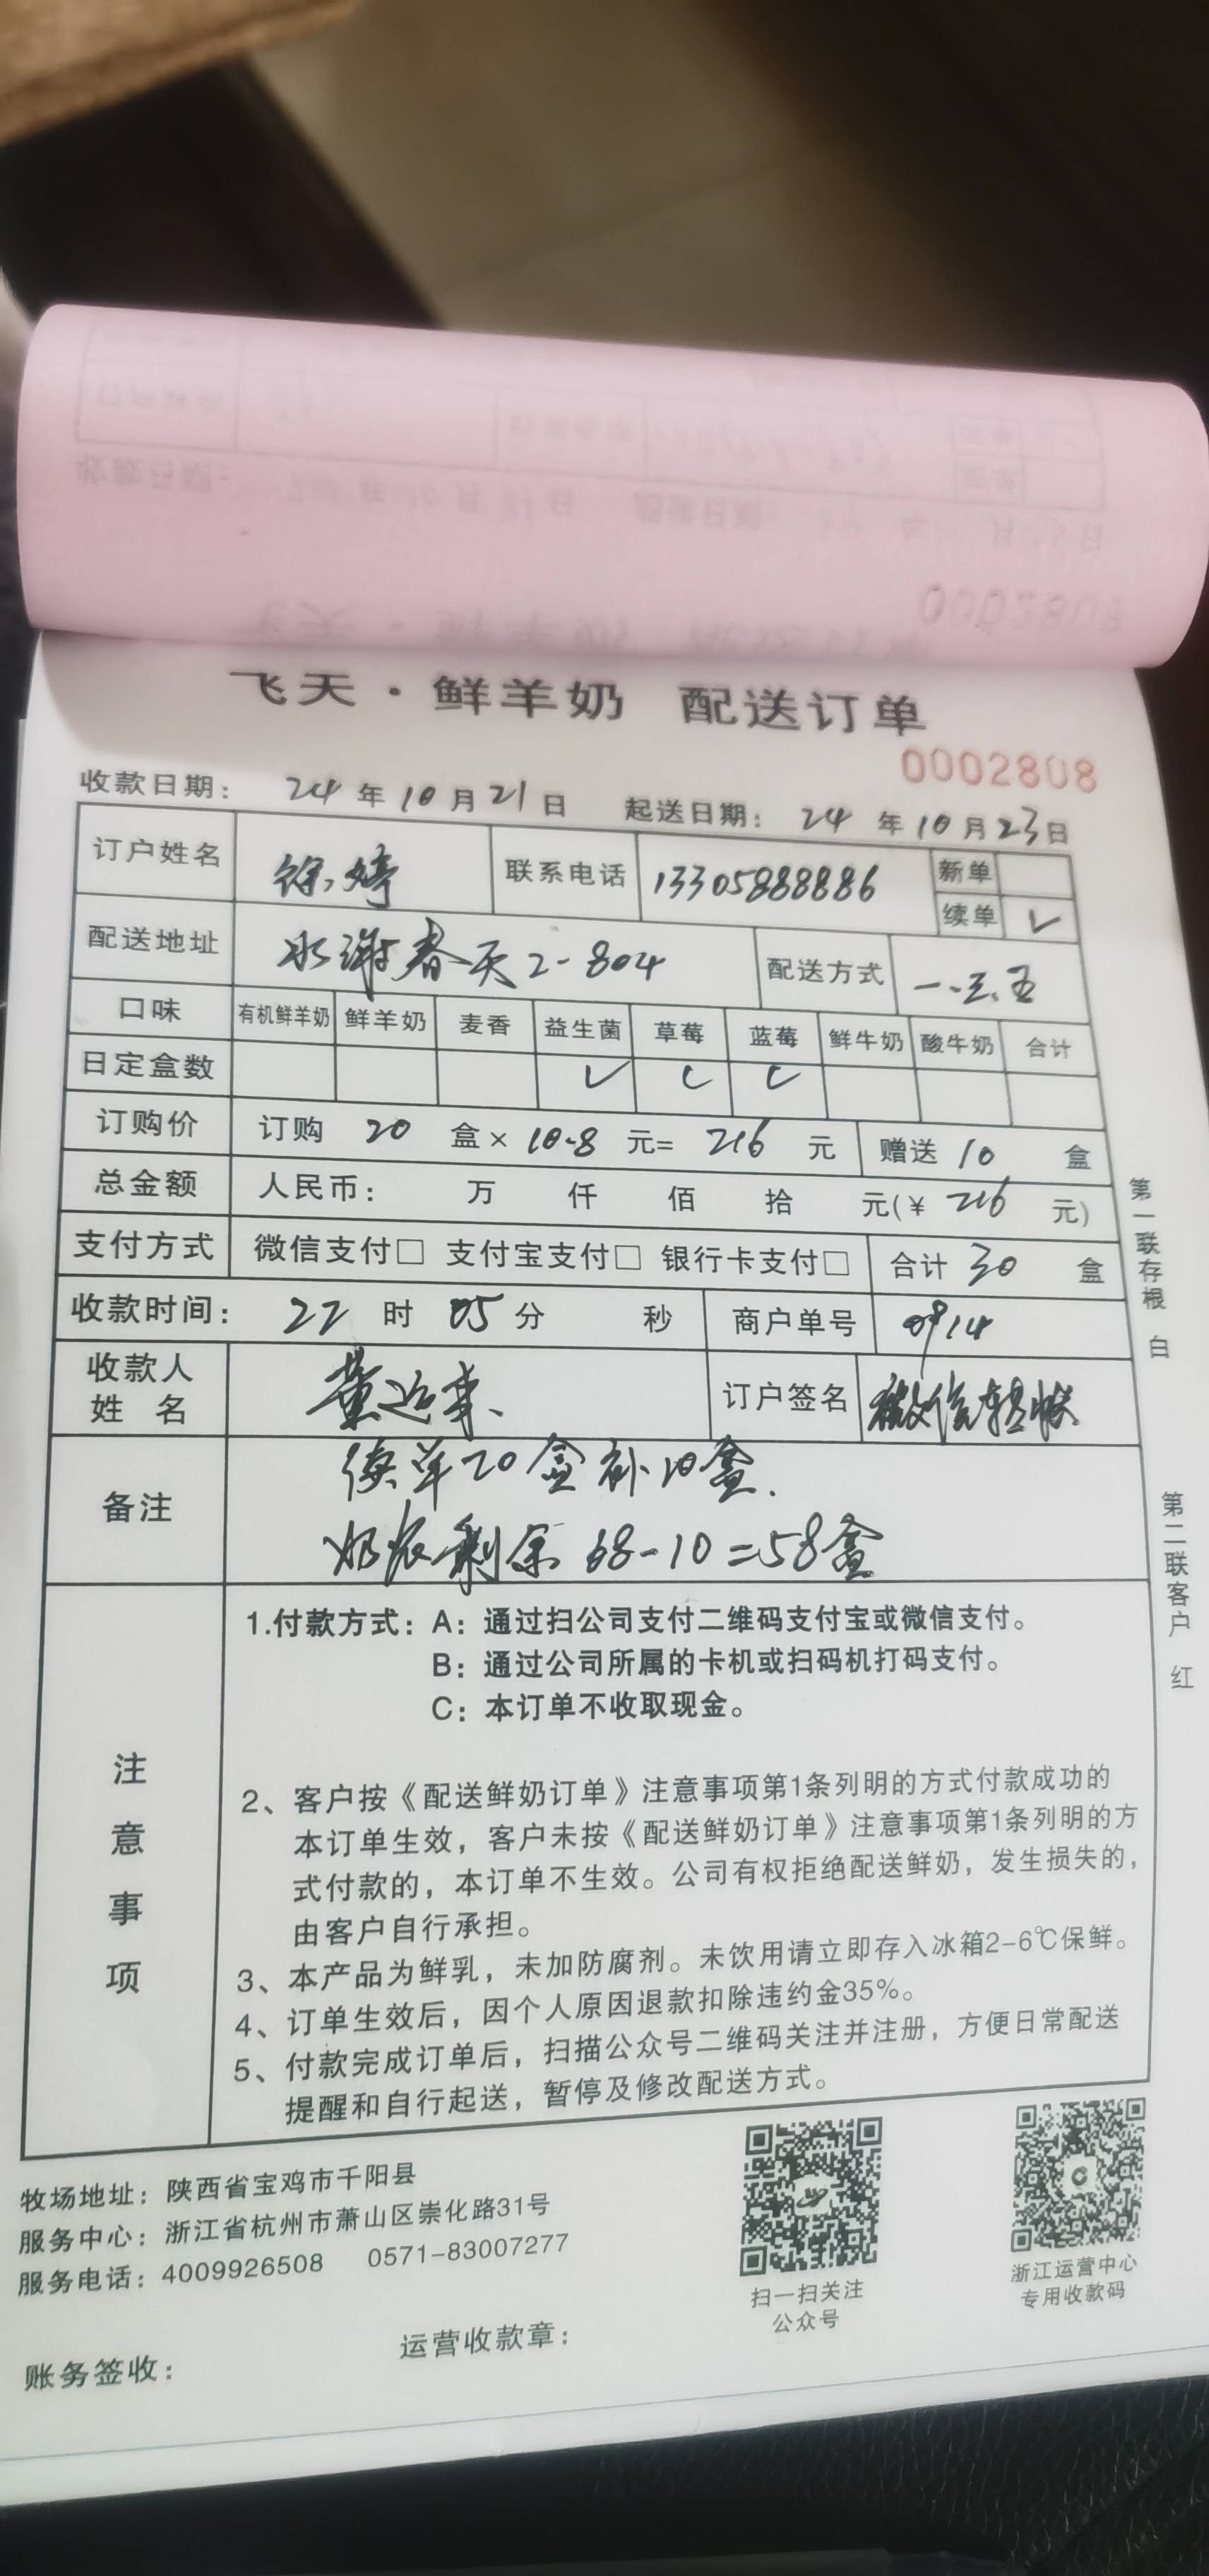 飞天·鲜羊奶 配送订单
0002808
收款日期： 24 年 10 月 21 日 起送日期： 24 年 10 月 23 日
订户姓名 徐婷 联系电话 13305888886 新单
续单 ✓
配送地址 水谢春天2-804 配送方式 一、三、五
口味 有机鲜羊奶 鲜羊奶 麦香 益生菌 草莓 蓝莓 鲜牛奶 酸牛奶 合计
日定盒数 ✓ ✓ ✓
订购价 订购 20 盒× 10.8 元= 216 元 赠送 10 盒
总金额 人民币： 万 仟 佰 拾 元(￥ 216 元)
支付方式 微信支付□ 支付宝支付□ 银行卡支付□ 合计 30 盒
收款时间： 22 时 05 分 秒 商户单号 0914
收款人
姓 名 订户签名 微信转帐
备注 续单20盒补10盒.
剩余 68-10=58盒
注意事项
1.付款方式：A：通过扫公司支付二维码支付宝或微信支付。
B：通过公司所属的卡机或扫码机打码支付。
C：本订单不收取现金。
2、客户按《配送鲜奶订单》注意事项第1条列明的方式付款成功的
本订单生效，客户未按《配送鲜奶订单》注意事项第1条列明的方
式付款的，本订单不生效。公司有权拒绝配送鲜奶，发生损失的，
由客户自行承担。
3、本产品为鲜乳，未加防腐剂。未饮用请立即存入冰箱2-6℃保鲜。
4、订单生效后，因个人原因退款扣除违约金35%。
5、付款完成订单后，扫描公众号二维码关注并注册，方便日常配送
提醒和自行起送，暂停及修改配送方式。
第一联存根 白
第二联客户 红
牧场地址：陕西省宝鸡市千阳县
服务中心：浙江省杭州市萧山区崇化路31号
服务电话：4009926508 0571-83007277
扫一扫关注
公众号
浙江运营中心
专用收款码
运营收款章：
账务签收：